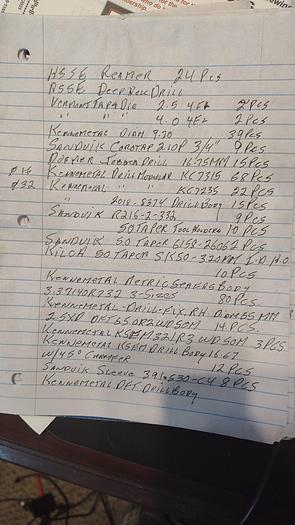 HSSE REAMER 24 Pcs
HSSE DEEP HOLE DRILL
VERMONT TAP & DIE 2.5 4FL 2Pcs
" " " 4.0 4FL 2Pcs
KENNEMETAL DIAM 9.70 39Pcs
SANDVIK COROTAP 210P 3/4" 9Pcs
DORMER JOBBER DRILL 16.75MM 15Pcs
Ø16 KENNEMETAL DRILL MODULAR KC7315 68Pcs
Ø32 KENNEMETAL " " KC7235 22Pcs
" DRILL BODY 15Pcs
SANDVIK R216-2-332 9Pcs
50 TAPER TOOL HOLDERS 10 PCS
SANDVIK 50 TAPER 6150-26062 PCS
50 TAPER SK50-320MM I.D.
10 PCS
KENNEMETAL METRIC SEATERS BODY
3-SIZES 80 PCS.
KENNEMETAL-DRILL-FIX, RH MM
2.5XD DFT650R2WD50M 14 PCS.
KENNEMETAL KSEM321R3WD50M 3PCS
KENNEMETAL KSEM DRILL BODY 16.67
W/45° CHAMFER 12 PCS
SANDVIK SLEEVE 391.530-C4 8 PCS
KENNEMETAL DFT DRILL BODY